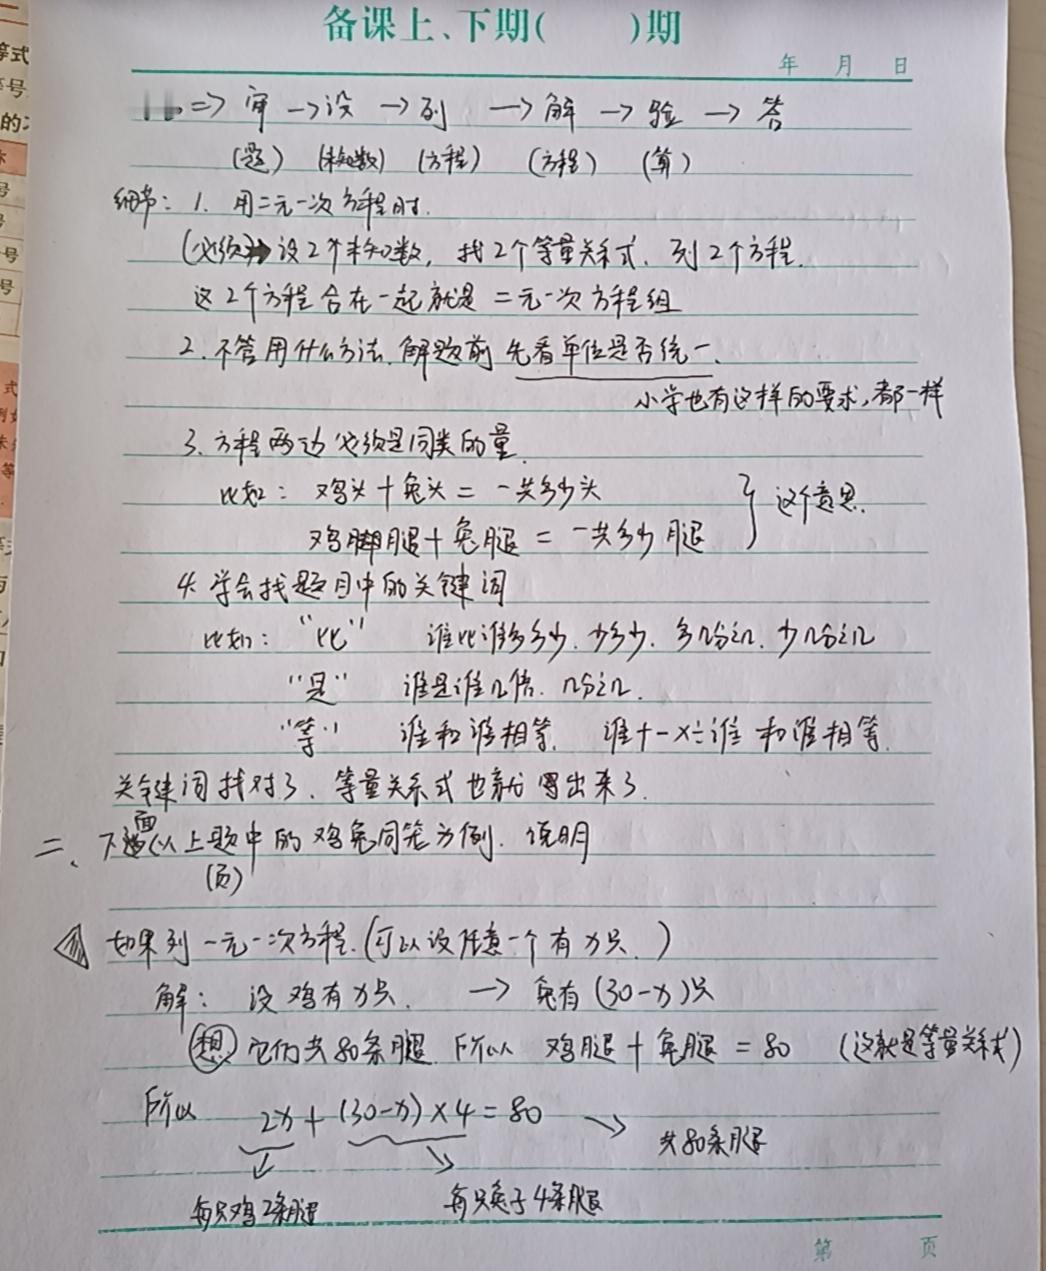 备课上、下期(　　)期
年 月 日
=> 审 → 设 → 列 → 解 → 验 → 答
(题) (未知数) (方程) (方程) (算)
细节: 1. 用二元一次方程时.
(必须) 设2个未知数, 找2个等量关系式、列2个方程.
这2个方程合在一起就是二元一次方程组
2. 不管用什么方法、解题前先看单位是否统一.
小学也有这样的要求,都一样
3. 方程两边必须是同类的量.
比如: 鸡头+兔头=一共多少头
鸡腿+兔腿=一共多少腿 } 这个意思.
4. 学会找题目中的关键词
比如: “比” 谁比谁多多少、少多少、多几分之几、少几分之几
“是” 谁是谁几倍、几分之几.
“等” 谁和谁相等. 谁+-×÷谁和谁相等.
关键词找对了、等量关系式也就写出来了.
二、下面以上题中的鸡兔同笼为例、说明
(页)
如果列一元一次方程.(可以设任意一个有x只.)
解: 设鸡有x只. → 兔有(30-x)只
想 它们共80条腿. 所以 鸡腿+兔腿=80 (这就是等量关系式)
所以 2x+(30-x)×4=80 → 共80条腿
每只鸡2条腿 每只兔子4条腿
第 页